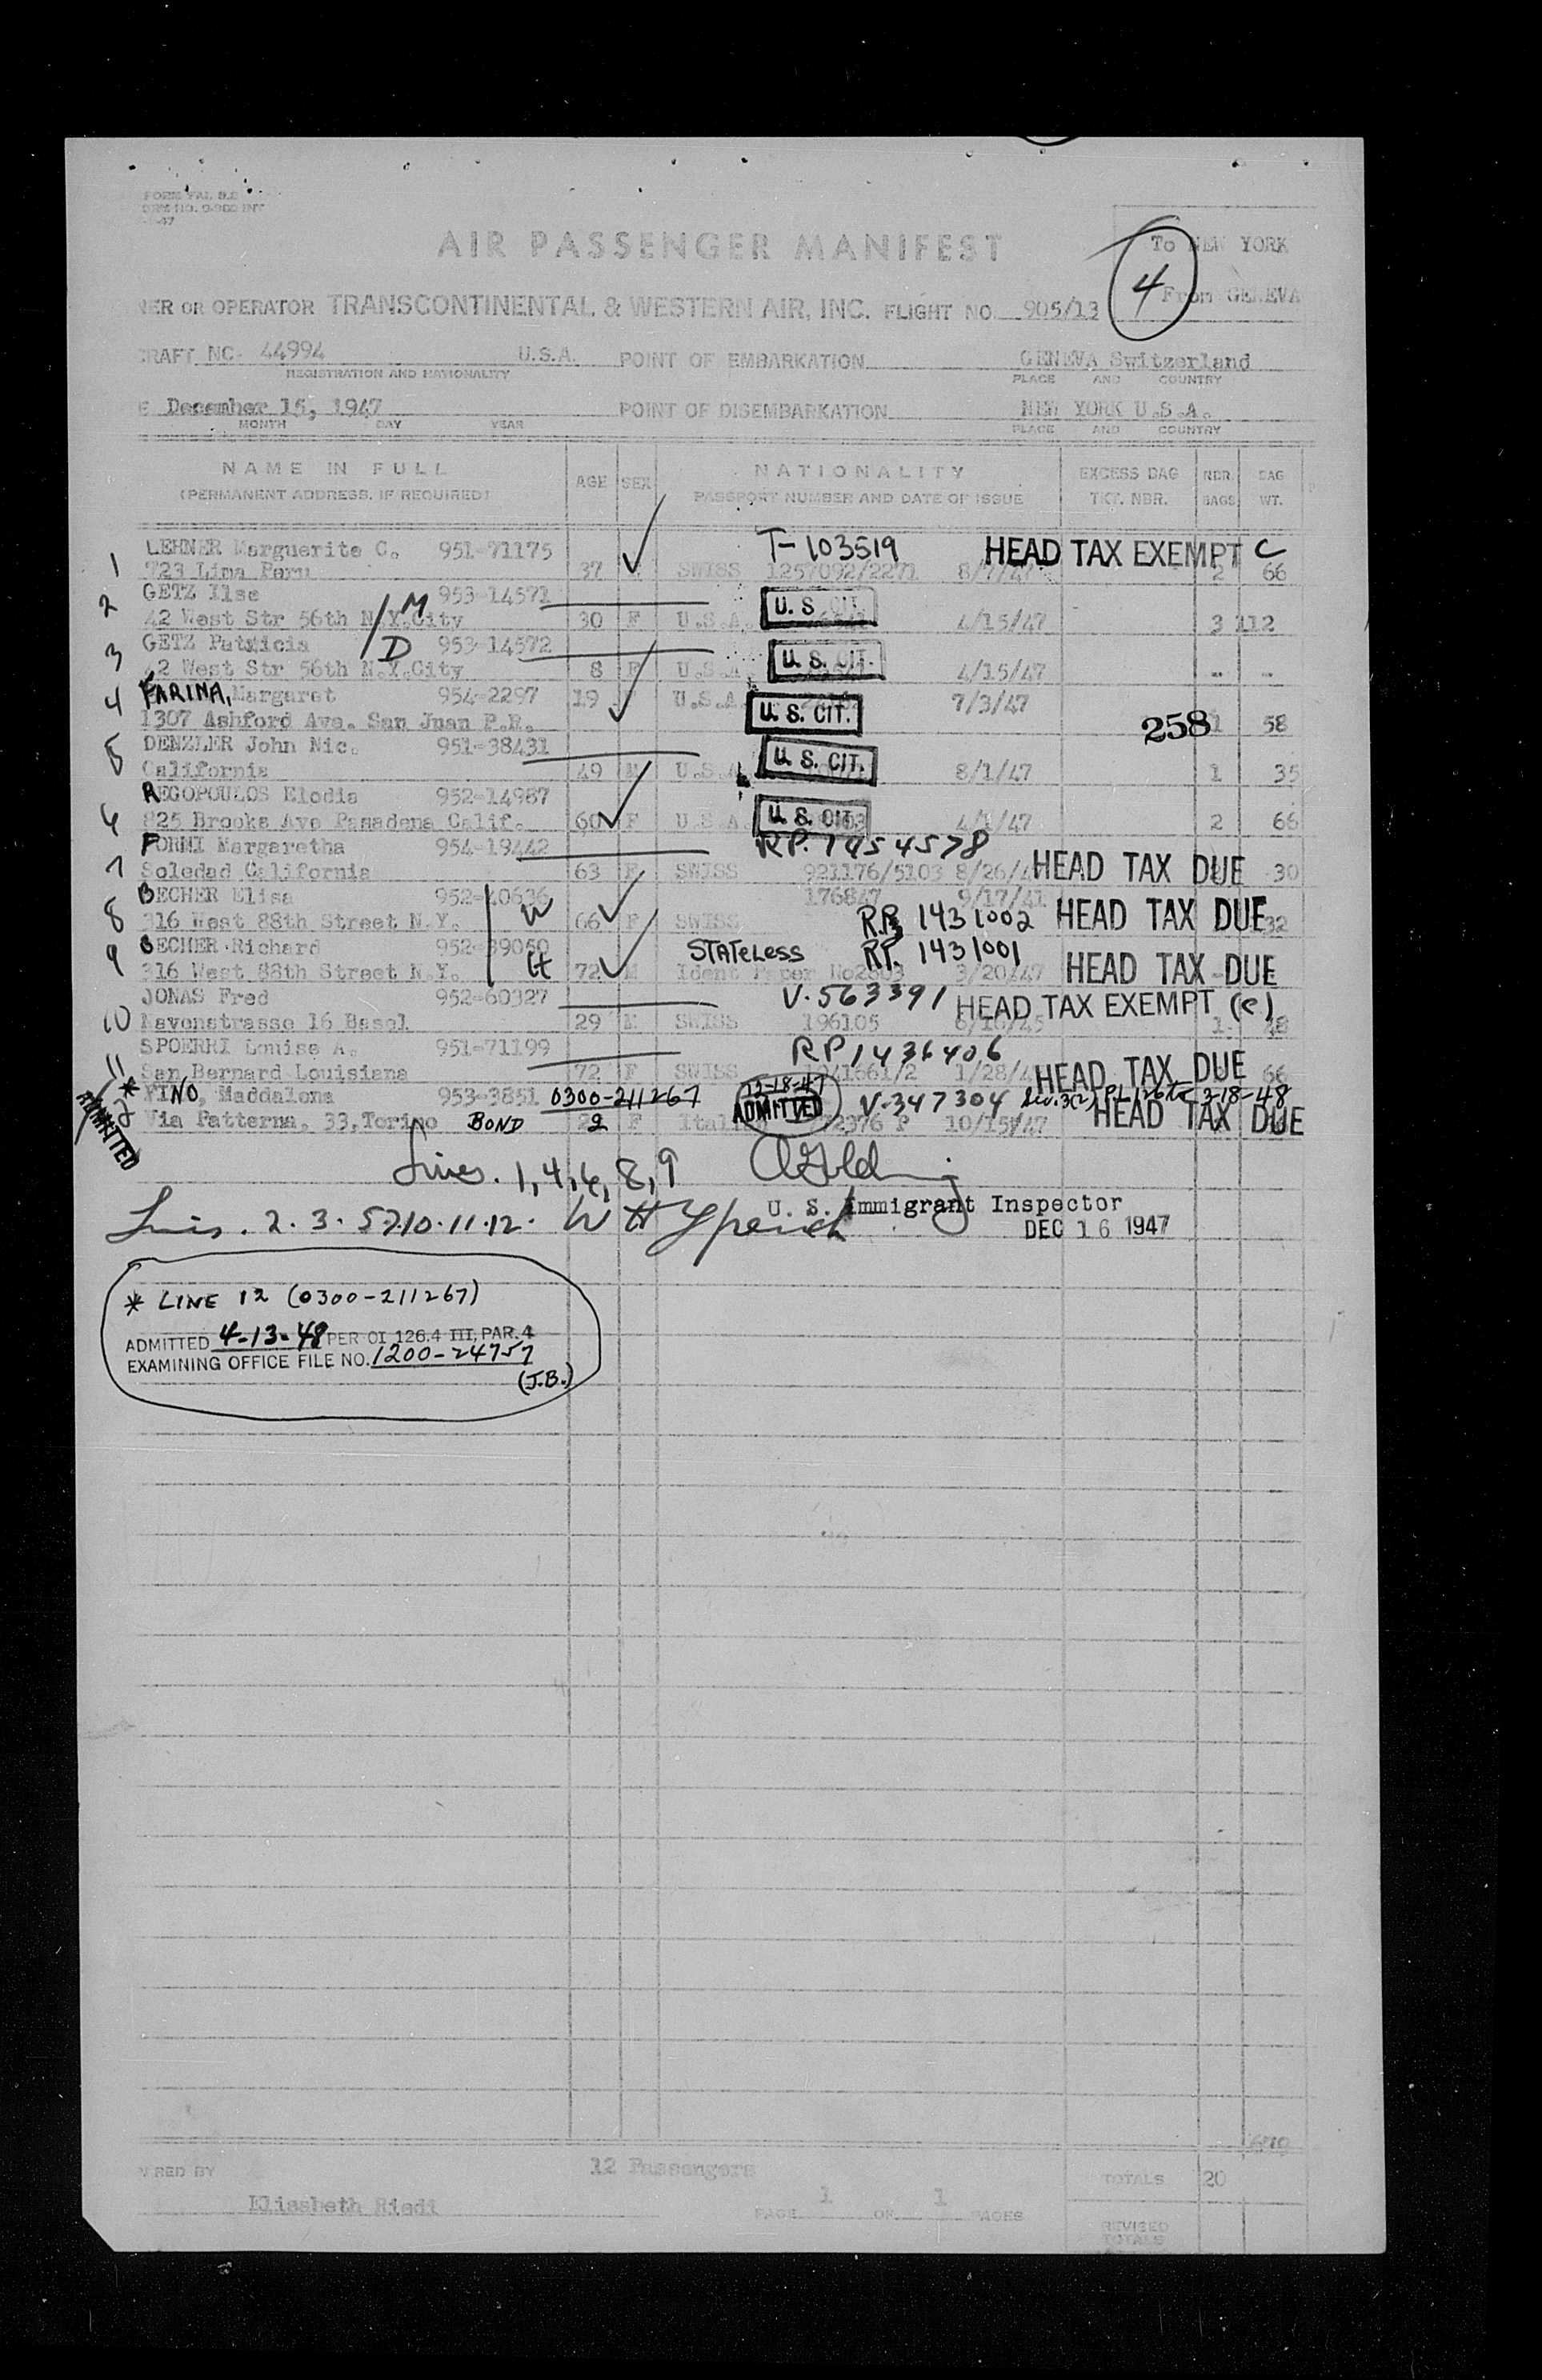 FORM
-47
AIR PASSENGER MANIFEST
To NEW YORK
4 From GENEVA
NER OR OPERATOR TRANSCONTINENTAL & WESTERN AIR, INC. FLIGHT NO. 905/13
CRAFT NC- 44994 U.S.A. POINT OF EMBARKATION GENEVA Switzerland
REGISTRATION AND NATIONALITY PLACE AND COUNTRY
E December 15, 1947 POINT OF DISEMBARKATION NEW YORK U.S.A.
MONTH DAY YEAR PLACE AND COUNTRY
NAME IN FULL AGE SEX NATIONALITY EXCESS BAG NBR. BAG
(PERMANENT ADDRESS, IF REQUIRED) PASSPORT NUMBER AND DATE OF ISSUE TKT. NBR. BAGS WT.
LEHNER Marguerite C. 951-71175 T-103519 HEAD TAX EXEMPT C
1 723 Lima Peru 37 SWISS 1257092/2271 2 66
2 GETZ Ilse M 953-14571 U.S. CIT.
42 West Str 56th N.Y.City 30 F U.S.A. 4/15/47 3 112
3 GETZ Patricia D 953-14572 U.S. CIT.
42 West Str 56th N.Y.City 8 F U.S.A. 4/15/47 - -
4 FARINA, Margaret 954-2297 19 U.S.A. 7/3/47
1307 Ashford Ave. San Juan P.R. U.S. CIT. 258 1 58
5 DENZLER John Nic. 951-38431 U.S. CIT.
California 49 M U.S.A. 8/1/47 1 35
REGOPOULOS Elodia 952-14987
6 825 Brooks Ave Pasadena Calif. 60 F U.S.A. U.S. CIT. 4/1/47 2 66
FORNI Margaretha 954-19442 RP. 1454578
7 Soledad California 63 F SWISS 921176/5103 8/26/4 HEAD TAX DUE 30
BECHER Elisa 952-40636 W 176847 9/17/41
8 316 West 88th Street N.Y. 66 F SWISS R.P. 1431002 HEAD TAX DUE 32
9 BECHER Richard 952-39050 H STATELESS RP. 1431001
316 West 88th Street N.Y. 72 M Ident Paper 3/20/47 HEAD TAX DUE
JONAS Fred 952-60327 V.563391 HEAD TAX EXEMPT (e)
10 Bavenstrasse 16 Basel 29 M SWISS 196105 1 48
SPOERRI Louise A. 951-71199 RP 1436406
11 San Bernard Louisiana 72 F SWISS 1/28/4 HEAD TAX DUE 66
12* FINO, Maddalena 953-3851 0300-211267 12-18-47 ADMITTED V-347304 Sec. 3(2) 3-18-48
ADMITTED Via Patterna, 33, Torino BOND F 10/15/47 HEAD TAX DUE
Lines. 1, 4, 6, 8, 9
U. S. Immigrant Inspector
Lines. 2. 3. 5. 7. 10. 11. 12. DEC 16 1947
* LINE 12 (0300-211267)
ADMITTED 4-13-48 PER OI 126.4 III, PAR. 4
EXAMINING OFFICE FILE NO. 1200-24757
(J.B.)
670
RED BY 12 Passengers TOTALS 20
Elisabeth Riedi PAGE 1 OF 1 PAGES
REVISED
TOTALS